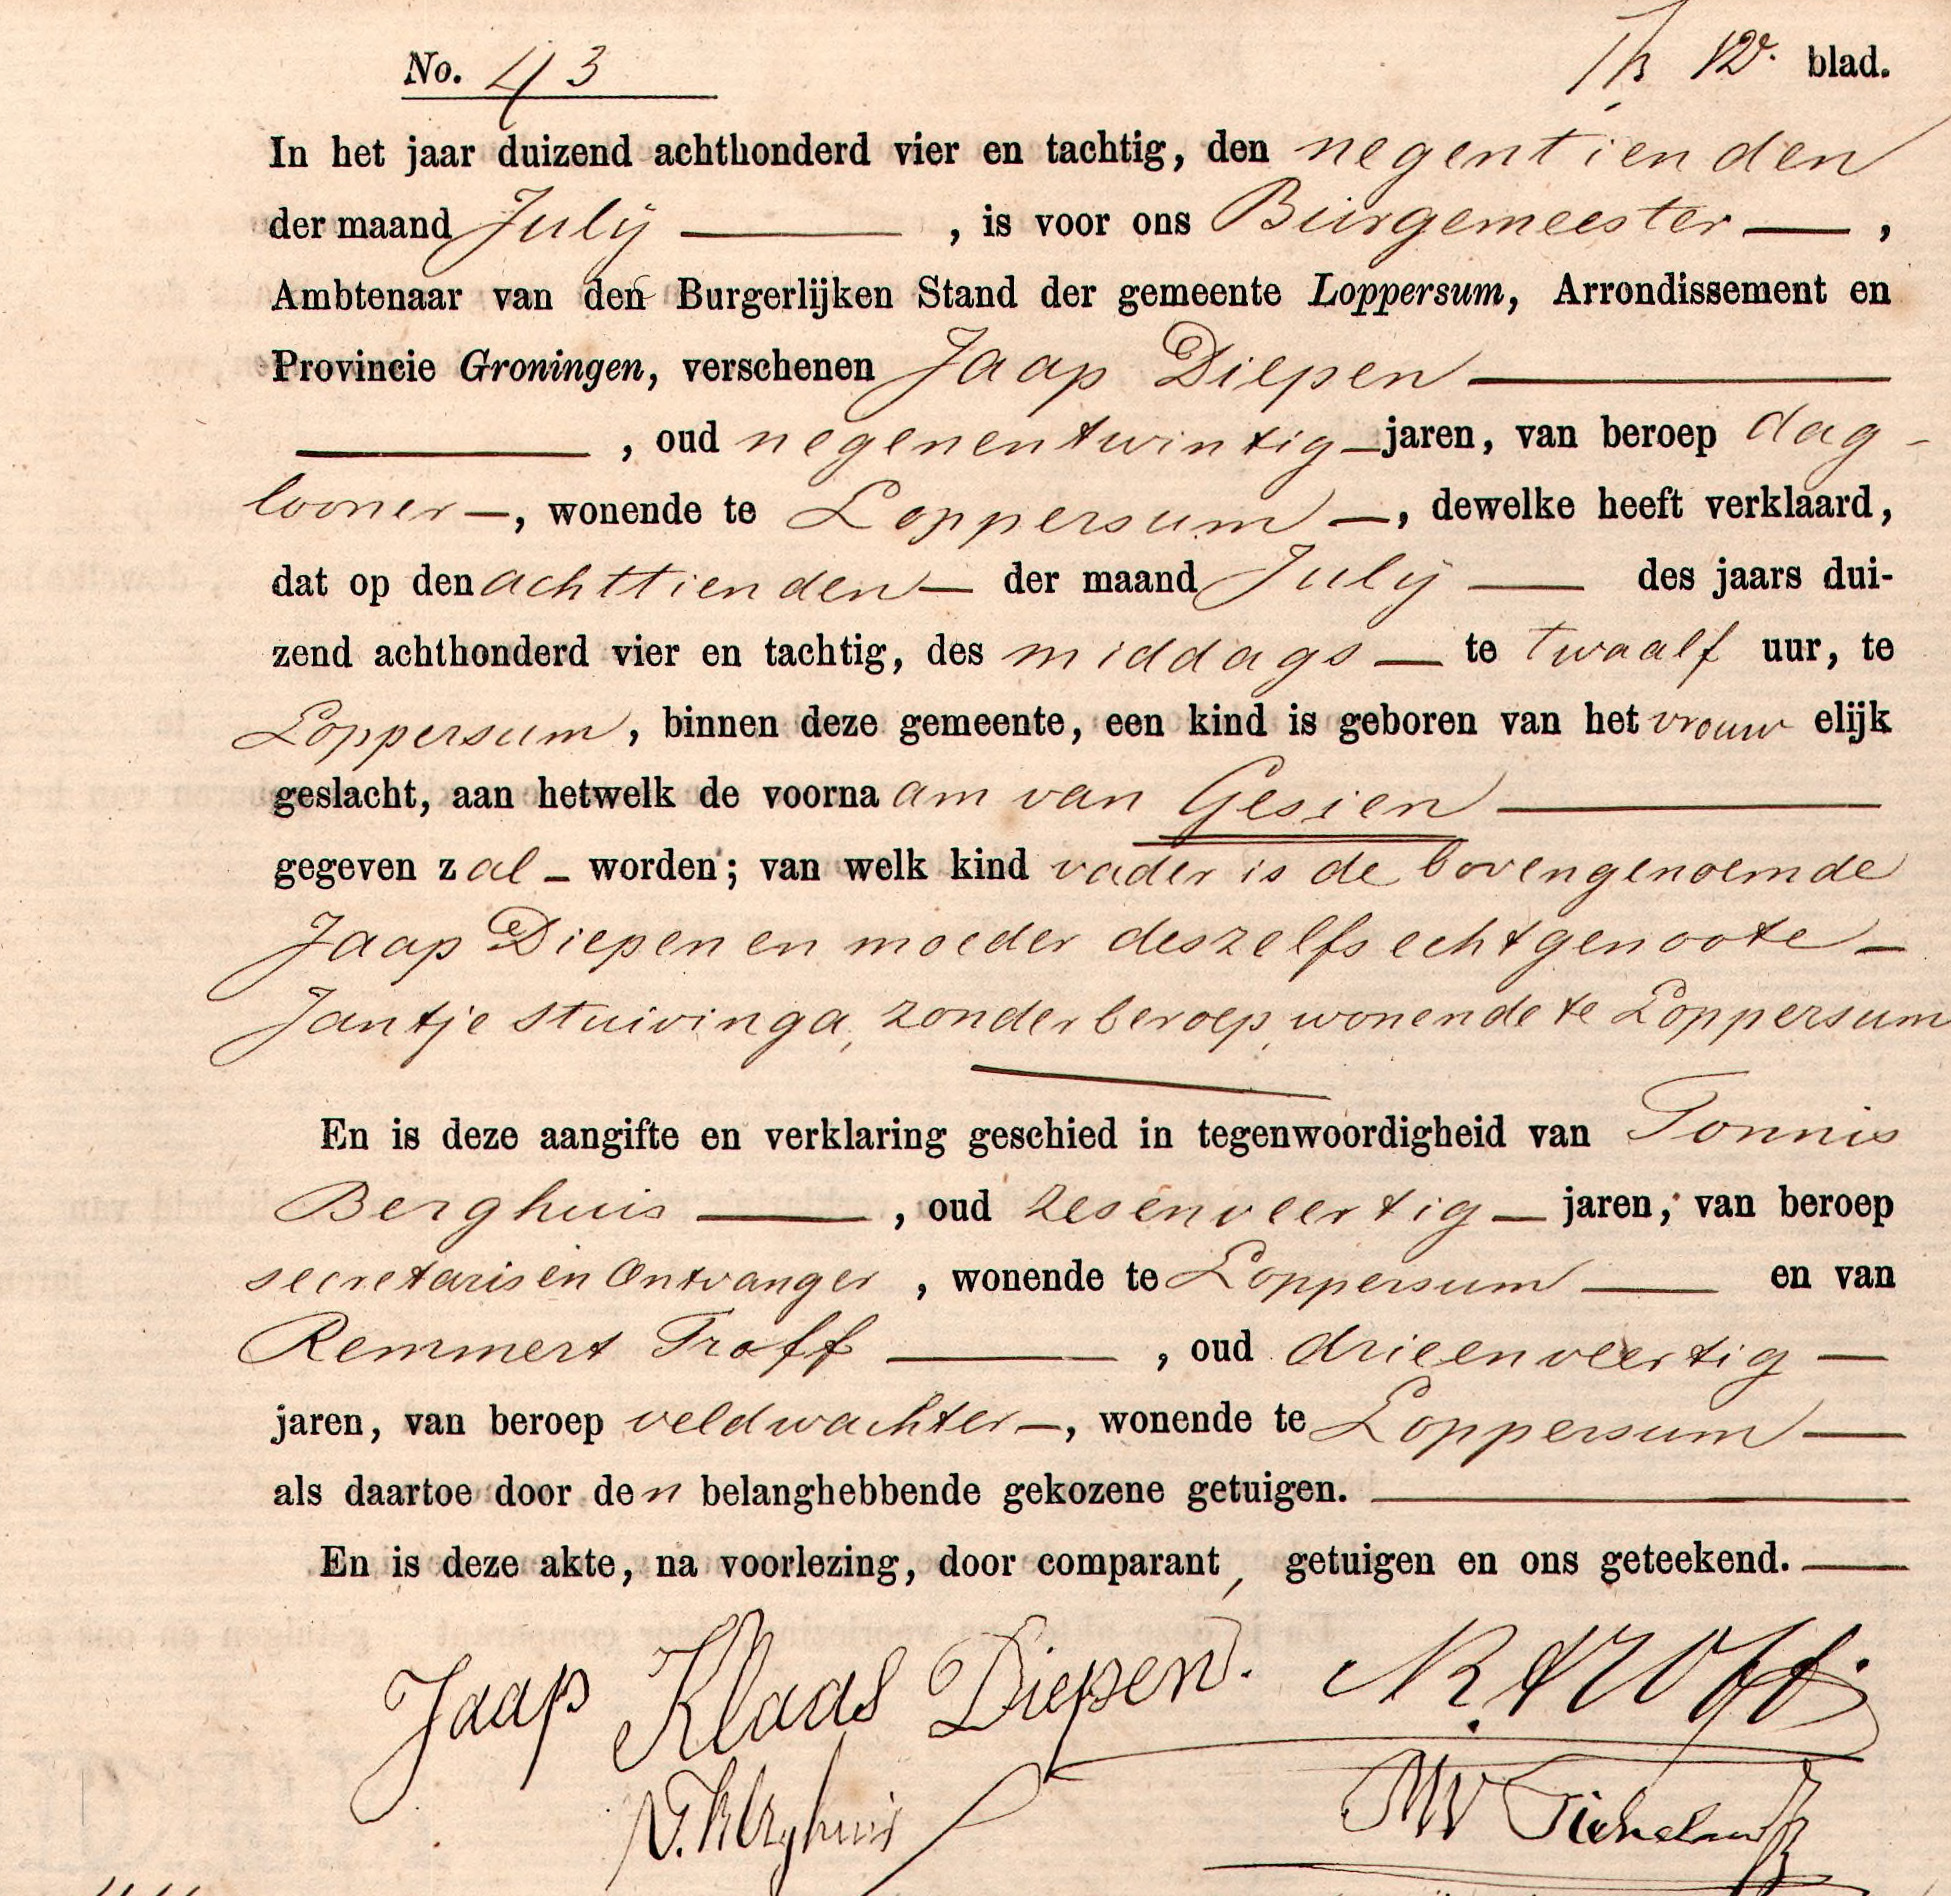 No. 43 12e. blad.
In het jaar duizend achthonderd vier en tachtig, den negentienden
der maand July —, is voor ons Burgemeester —,
Ambtenaar van den Burgerlijken Stand der gemeente Loppersum, Arrondissement en
Provincie Groningen, verschenen Jaap Diepen —
—, oud negenentwintig — jaren, van beroep dag-
looner —, wonende te Loppersum —, dewelke heeft verklaard,
dat op den achttienden — der maand July — des jaars dui-
zend achthonderd vier en tachtig, des middags — te twaalf uur, te
Loppersum, binnen deze gemeente, een kind is geboren van het vrouwelijk
geslacht, aan hetwelk de voornaam van Gesien —
gegeven zal — worden; van welk kind vader is de bovengenoemde
Jaap Diepen en moeder deszelfs echtgenoote —
Jantje Stuivinga, zonder beroep, wonende te Loppersum
En is deze aangifte en verklaring geschied in tegenwoordigheid van Tonnis
Berghuis —, oud zesenveertig — jaren, van beroep
secretaris en Ontvanger, wonende te Loppersum — en van
Remmert Troff —, oud drieenveertig —
jaren, van beroep veldwachter —, wonende te Loppersum —
als daartoe door den belanghebbende gekozene getuigen. —
En is deze akte, na voorlezing, door comparant, getuigen en ons geteekend. —
Jaap Klaas Diepen. R. Troff.
T. Berghuis